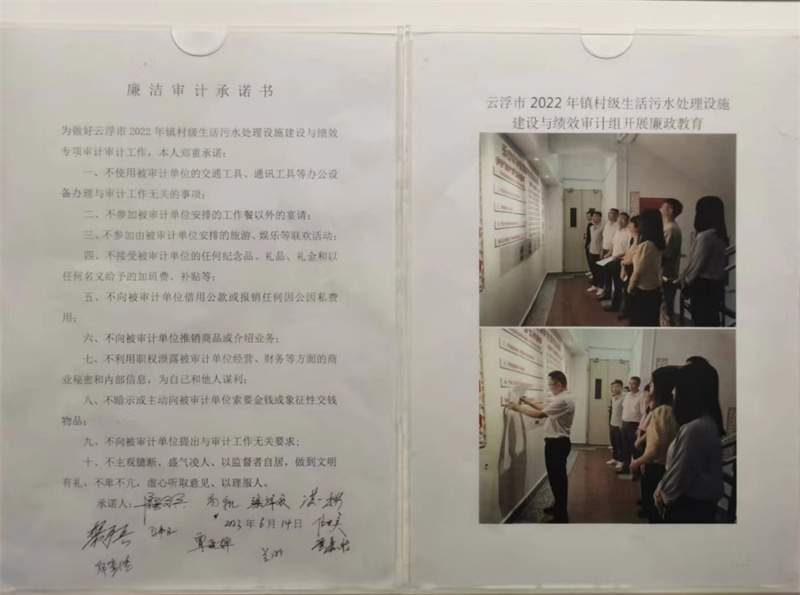 廉洁审计承诺书
为做好云浮市2022年镇村级生活污水处理设施建设与绩效
专项审计审计工作，本人郑重承诺：
一、不使用被审计单位的交通工具、通讯工具等办公设
备办理与审计工作无关的事项；
二、不参加被审计单位安排的工作餐以外的宴请；
三、不参加由被审计单位安排的旅游、娱乐等联欢活动；
四、不接受被审计单位的任何纪念品、礼品、礼金和以
任何名义给予的加班费、补贴等；
五、不向被审计单位借用公款或报销任何因公因私费
用；
六、不向被审计单位推销商品或介绍业务；
七、不利用职权泄露被审计单位经营、财务等方面的商
业秘密和内部信息，为自己和他人谋利；
八、不暗示或主动向被审计单位索要金钱或象征性交钱
物品；
九、不向被审计单位提出与审计工作无关要求；
十、不主观臆断、盛气凌人、以监督者自居，做到文明
有礼、不卑不亢，虚心听取意见、以理服人。
承诺人：
2023年6月14日
云浮市2022年镇村级生活污水处理设施
建设与绩效审计组开展廉政教育